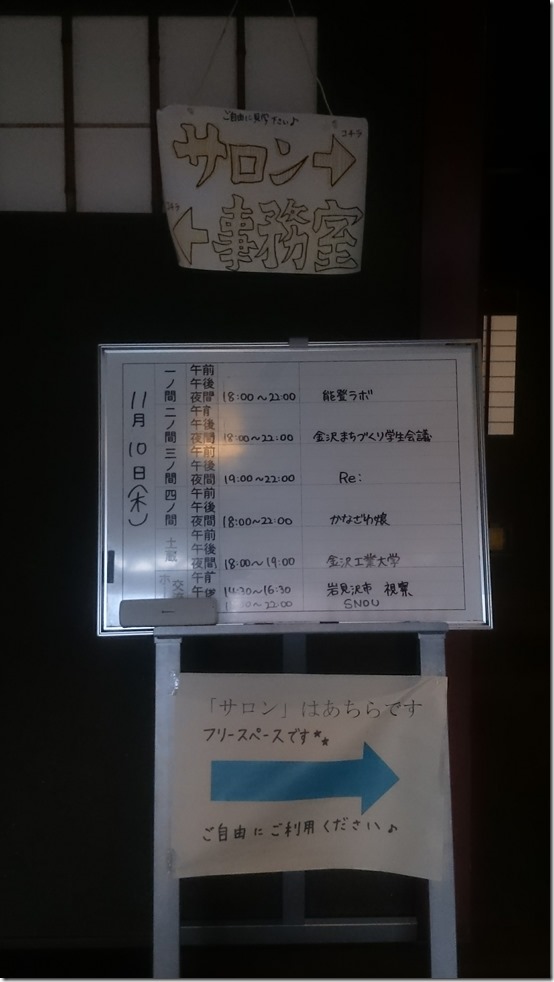 ご自由に見学下さい♪
コチラ
サロン→
コチラ
←事務室
11月10日(木)
一ノ間 午前
午後
夜間 18:00〜22:00 能登ラボ
二ノ間 午前
午後
夜間 18:00〜22:00 金沢まちづくり学生会議
三ノ間 午前
午後
夜間 19:00〜22:00 Re:
四ノ間 午前
午後
夜間 18:00〜22:00 かなざわ娘
土蔵 午前
午後
夜間 18:00〜19:00 金沢工業大学
午前
午後 14:30〜16:30 岩見沢市 視察
〜22:00 SNOU
「サロン」はあちらです
フリースペースです**
ご自由にご利用ください♪